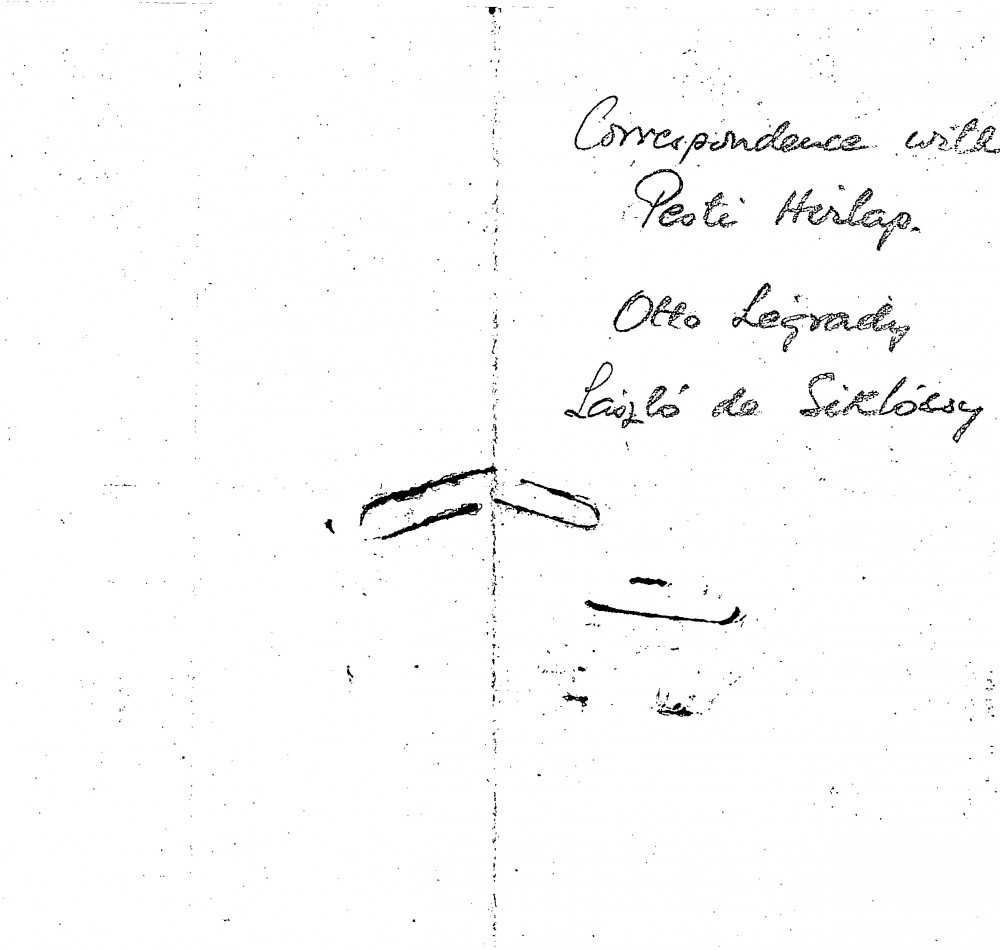 Correspondence with
Pesti Hirlap.
Otto Légrady
László de Siklóssy